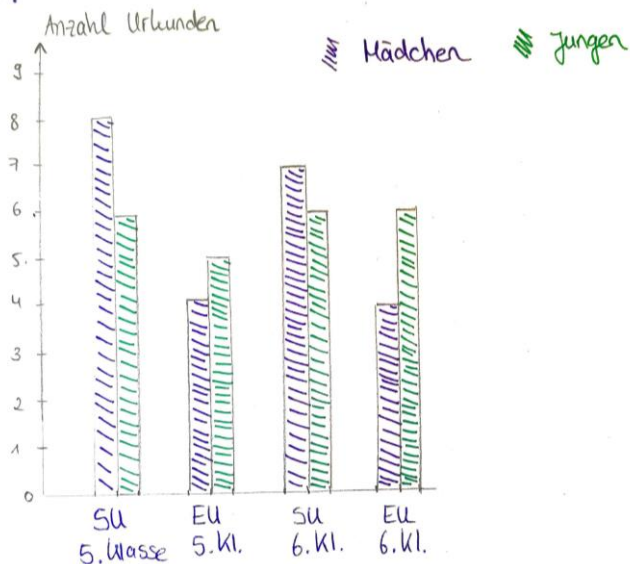 Anzahl Urkunden
Mädchen
Jungen
9
8
7
6
5
4
3
2
1
0
SU EU SU EU
5. Klasse 5. Kl. 6. Kl. 6. Kl.